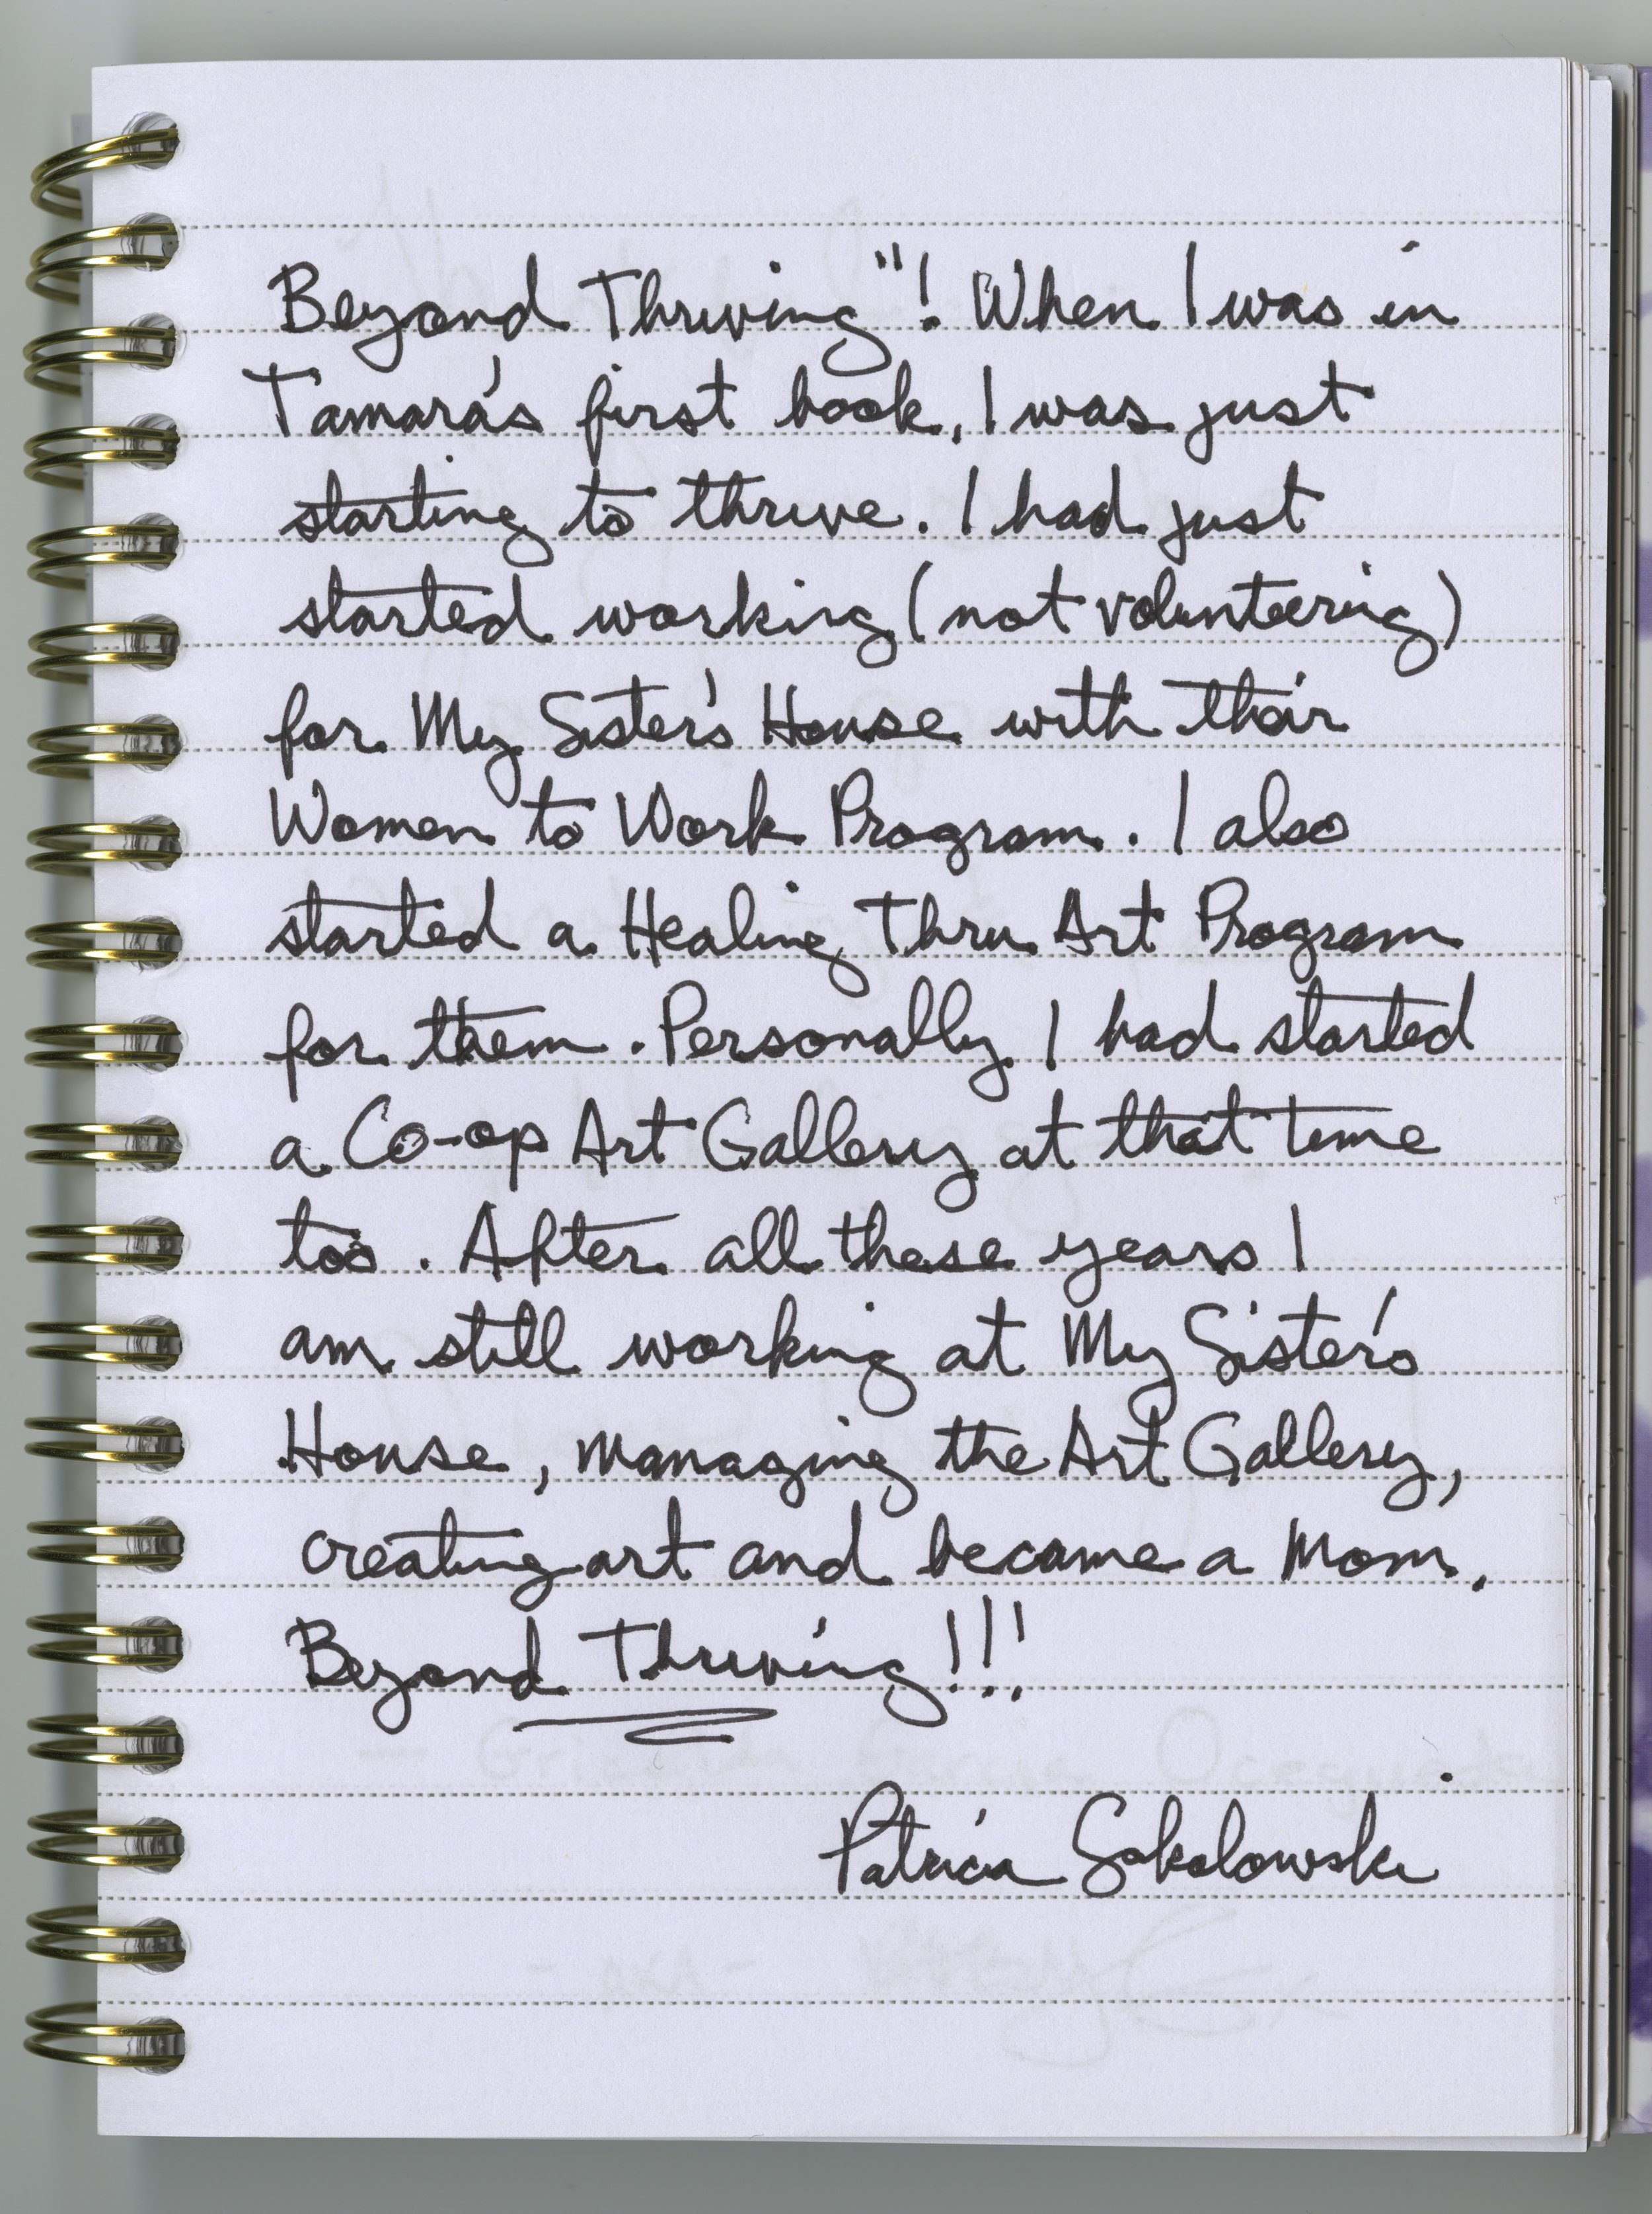 Beyond Thriving"! When I was in
Tamara's first book, I was just
starting to thrive. I had just
started working (not volunteering)
for My Sister's House with their
Women to Work Program. I also
started a Healing Thru Art Program
for them. Personally I had started
a Co-op Art Gallery at that time
too. After all these years I
am still working at My Sister's
House, managing the Art Gallery,
creating art and became a Mom.
Beyond Thriving!!!
Patricia Sokolowski